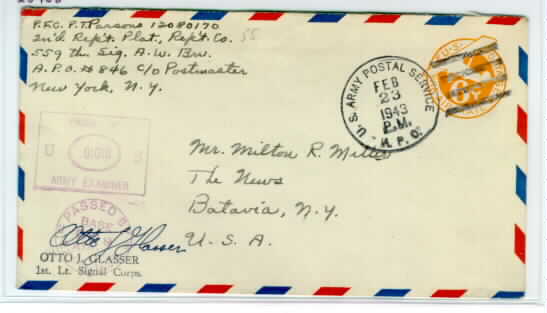 P.F.C. P.T. Parsons 12080170
2n'd Rep't. Plat., Rep't. Co. 55
559 th. Sig. A.W. Bn.
A.P.O. # 846 c/o Postmaster
New York, N.Y.
U.S. ARMY POSTAL SERVICE
FEB
23
1943
P.M.
A.P.O.
U.S.
6
U S
ARMY EXAMINER
PASSED B
BASE
Mr. Milton R. Miller
The News
Batavia, N.Y.
U.S.A.
Otto J Glasser
OTTO J. GLASSER
1st. Lt. Signal Corps.